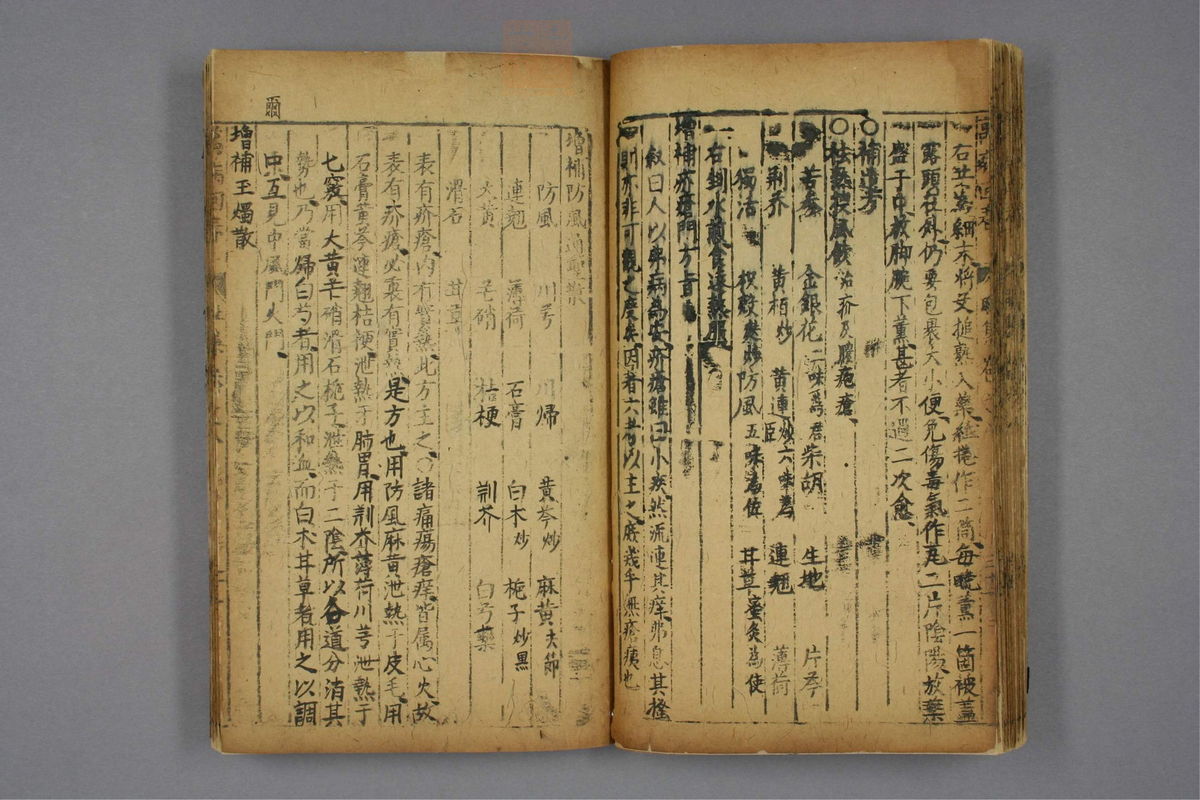 右共為細末將艾搥熟入藥在內捲作二筒每晚薰一箇被蓋
露頭在外仍要包裹大小便免傷毒氣作瓦二片陰陽放藥
盛于中放脚腕下薰甚者不過二次愈
○補遺考
○祛熱扶風飲治疥及膿疱瘡
苦參 金銀花二味為君 柴胡 生地 片芩
荆芥 黄栢炒 黄連炒六味為臣 連翹 薄荷
獨活 枳殼麸炒 防風五味為佐 甘草蜜灸為使
右剉水煎食遠熱服
增補疥瘡門方旨
敘曰人以弗病為安疥瘡雖曰小疾然流連其痒弗息其搔
則亦非可觀之 矣因著六考以主之庶幾乎無瘡痍也
增補防風通聖散
防風 川芎 川歸 黄芩炒 麻黄去節
連翹 薄荷 石膏 白术炒 梔子炒黑
大黄 芒硝 桔梗 荆芥 白芍藥
滑石 甘草
表有疥瘡內有實熱此方主之○諸痛瘍瘡痒皆属心火故
表有疥瘡必裏有實熱是方也用防風麻黄泄熱于皮毛用
石膏黄芩連翹桔梗泄熱于肺胃用荆芥薄荷川芎泄熱于
七竅用大黄芒硝滑石梔子泄熱于二陰所以各道分消其
勢也乃當歸白芍者用之以和血而白术甘草者用之以調
中互見中風門火門
增補玉燭散
爾